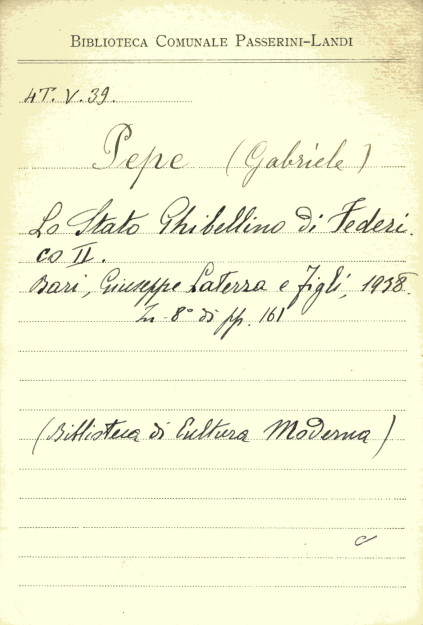 BIBLIOTECA COMUNALE PASSERINI-LANDI
4T. V. 39.
Pepe (Gabriele)
Lo Stato Ghibellino di Federi.
co II.
Bari, Giuseppe Laterza e figli, 1938.
In-8° di pp. 161
(Biblioteca di Cultura Moderna)